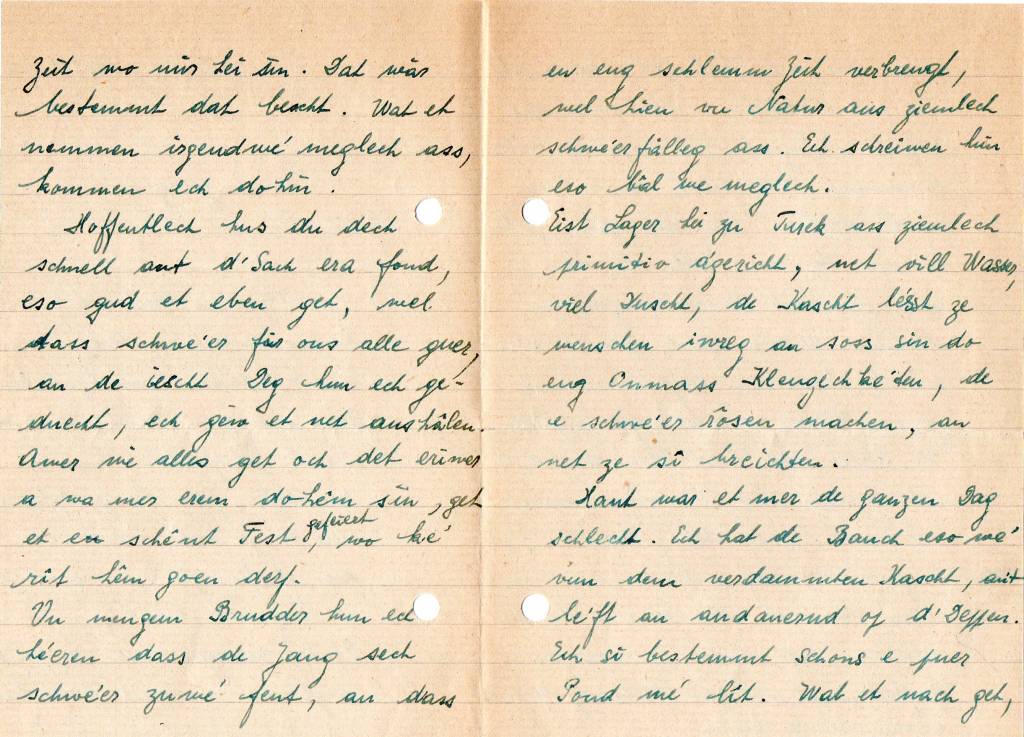 Zeit wo mir hei sin. Dat wär
bestemmt dat bescht. Wat et
nemmen irgendwé meglech ass,
kommen ech dohin.
Hoffentlech hus du dech
schnell an d'Sach era fond,
eso gud et eben get, wel
dass schwéer fir ons alle guer,
an de iescht Deg hun ech ge-
duecht, ech géiw et net aushälen.
Awer wie alles get och dët eriwer
a wa mer erem dohêm sin, get
et en schént Fest gefeiert, wo ké
rit hêm goen derf.
Vu mengem Brudder hun ech
héeren dass de Jang sech
schwéer zuwé fent, an dass
en eng schlemm Zeit verbrengt,
wel hien vu Natur aus ziemlech
schwéerfälleg ass. Ech schreiwen him
eso bâl we meglech.
Eist Lager hei zu Turek ass ziemlech
primitiv agericht, net vill Wasser,
viel Duscht, de Kascht lésst ze
wenschen iwreg an soss sin do
eng Onmass Klengechkéten, de
e schwéer rosen machen, an
net ze si breichten.
Haut war et mer de ganzen Dag
schlecht. Ech hat de Bauch eso wé
vun dem verdammten Kascht, ant
léft an andauernd op d'Deppen.
Ech si bestemmt schons e puer
Pond mé lît. Wat et nach get,